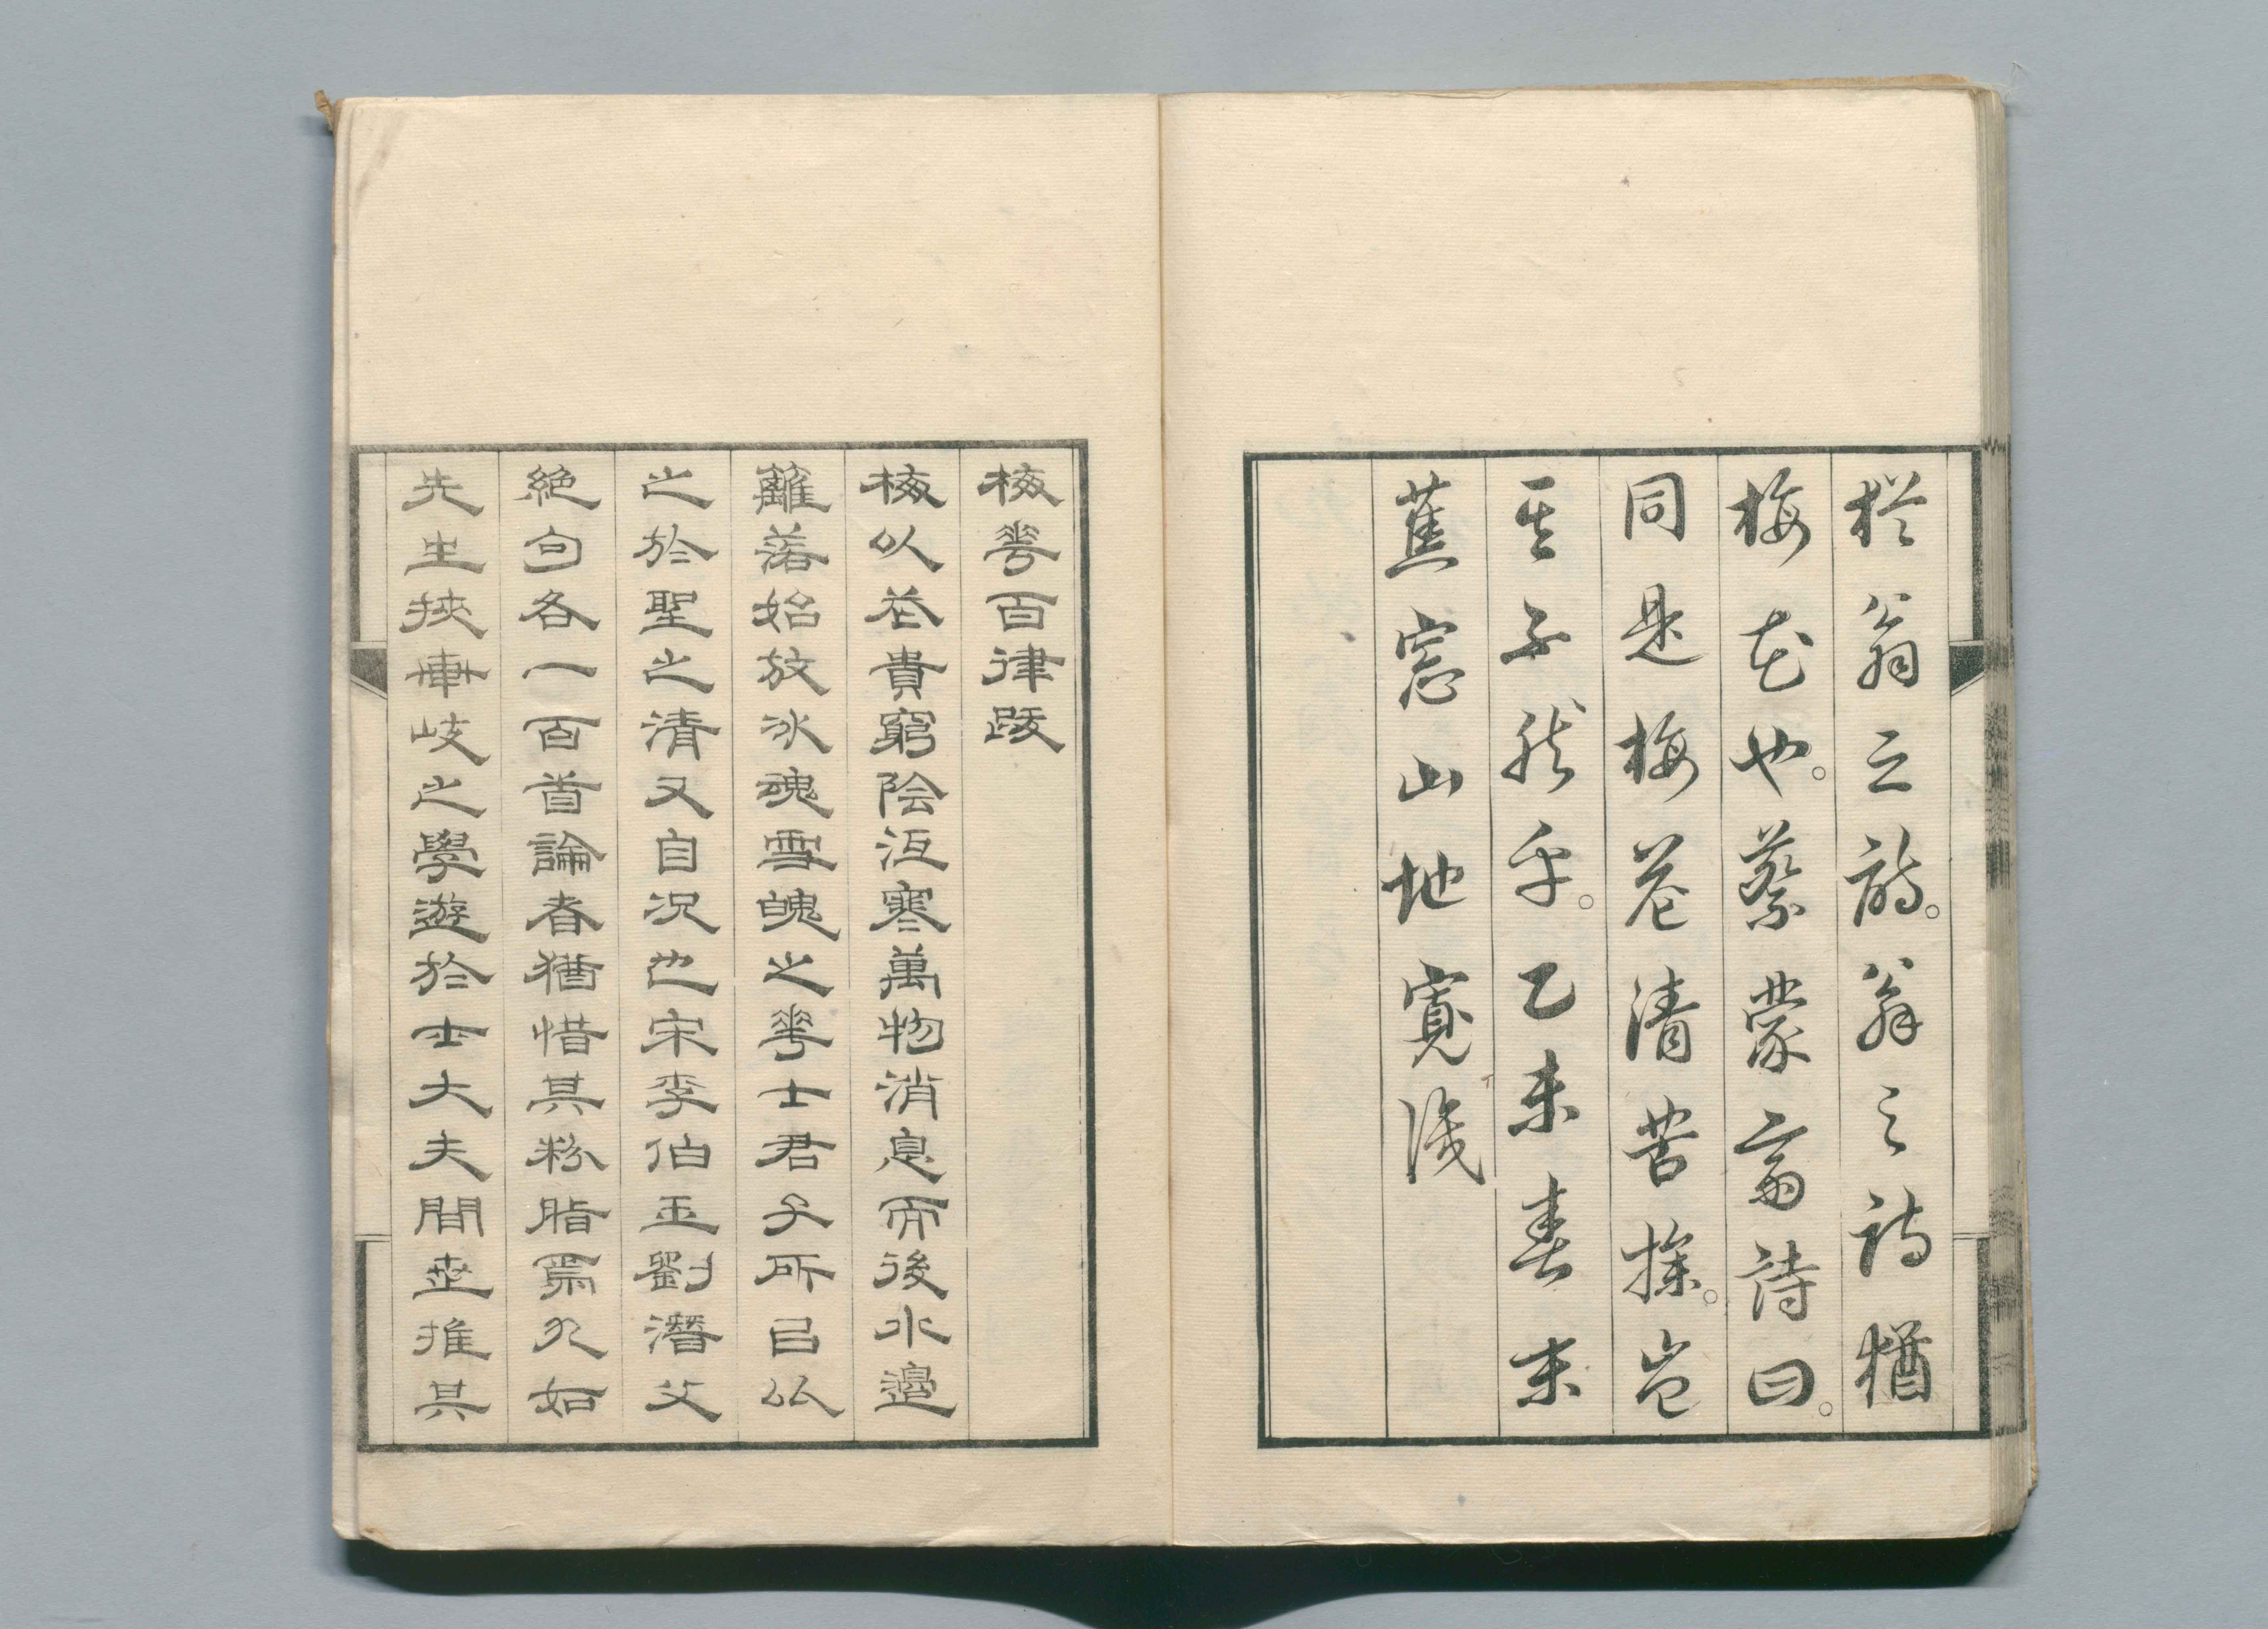 於翁之詩。翁之詩猶
梅花也。蔡蒙斎詩曰。
同是梅花清苦操。豈
其不然乎。乙未春末
蕉窓山地寛浅
梅華百律跋
梅以花貴窮陰沍寒萬物消息而後水邊
籬落始放冰魂雪魄之華士君子所㠯以
之於聖之清又自況也宋李伯玉劉潛父
絕句各一百首論者猶惜其粉脂焉九如
先生挾軒岐之學遊於士大夫間世推其